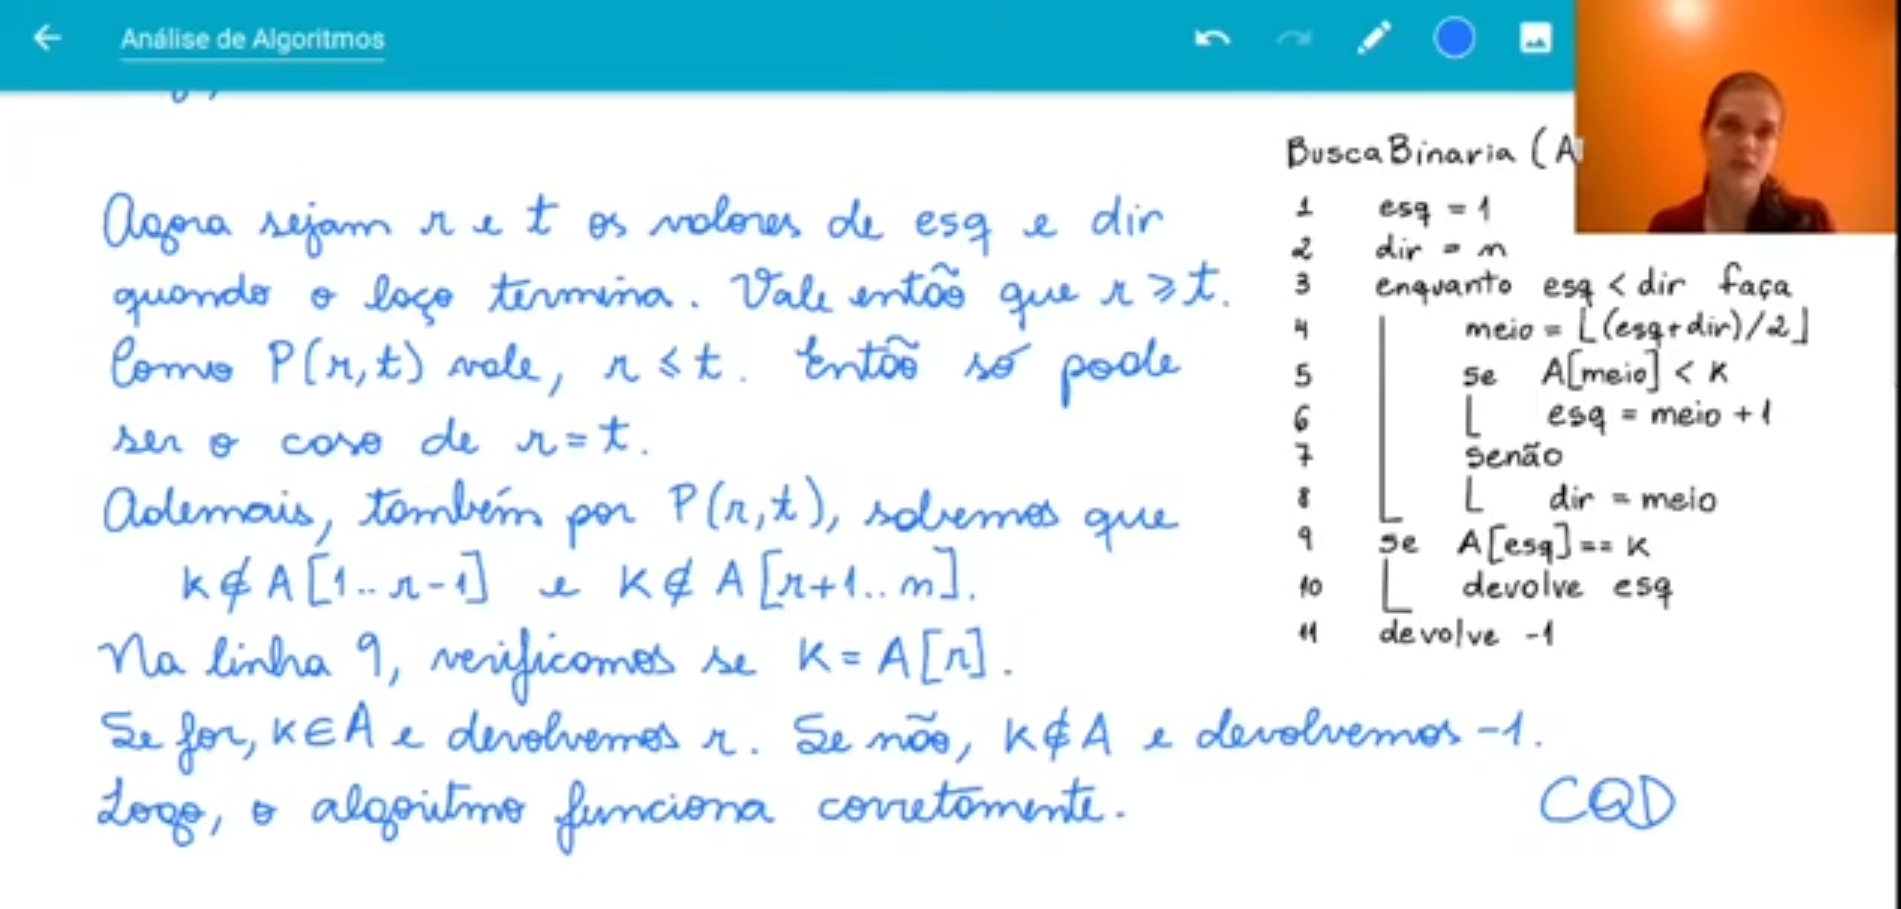 Análise de Algoritmos
Agora sejam r e t os valores de esq e dir
quando o laço termina. Vale então que r ⩾ t.
Como P(r,t) vale, r ⩽ t. Então só pode
ser o caso de r = t.
Ademais, também por P(r,t), sabemos que
K ∉ A[1..r-1] e K ∉ A[r+1..n].
Na linha 9, verificamos se K = A[r].
Se for, K ∈ A e devolvemos r. Se não, K ∉ A e devolvemos -1.
Logo, o algoritmo funciona corretamente.
CQD
BuscaBinaria (A
1 esq = 1
2 dir = n
3 enquanto esq < dir faça
4 meio = ⌊(esq+dir)/2⌋
5 se A[meio] < K
6 esq = meio + 1
7 senão
8 dir = meio
9 se A[esq] == K
10 devolve esq
11 devolve -1